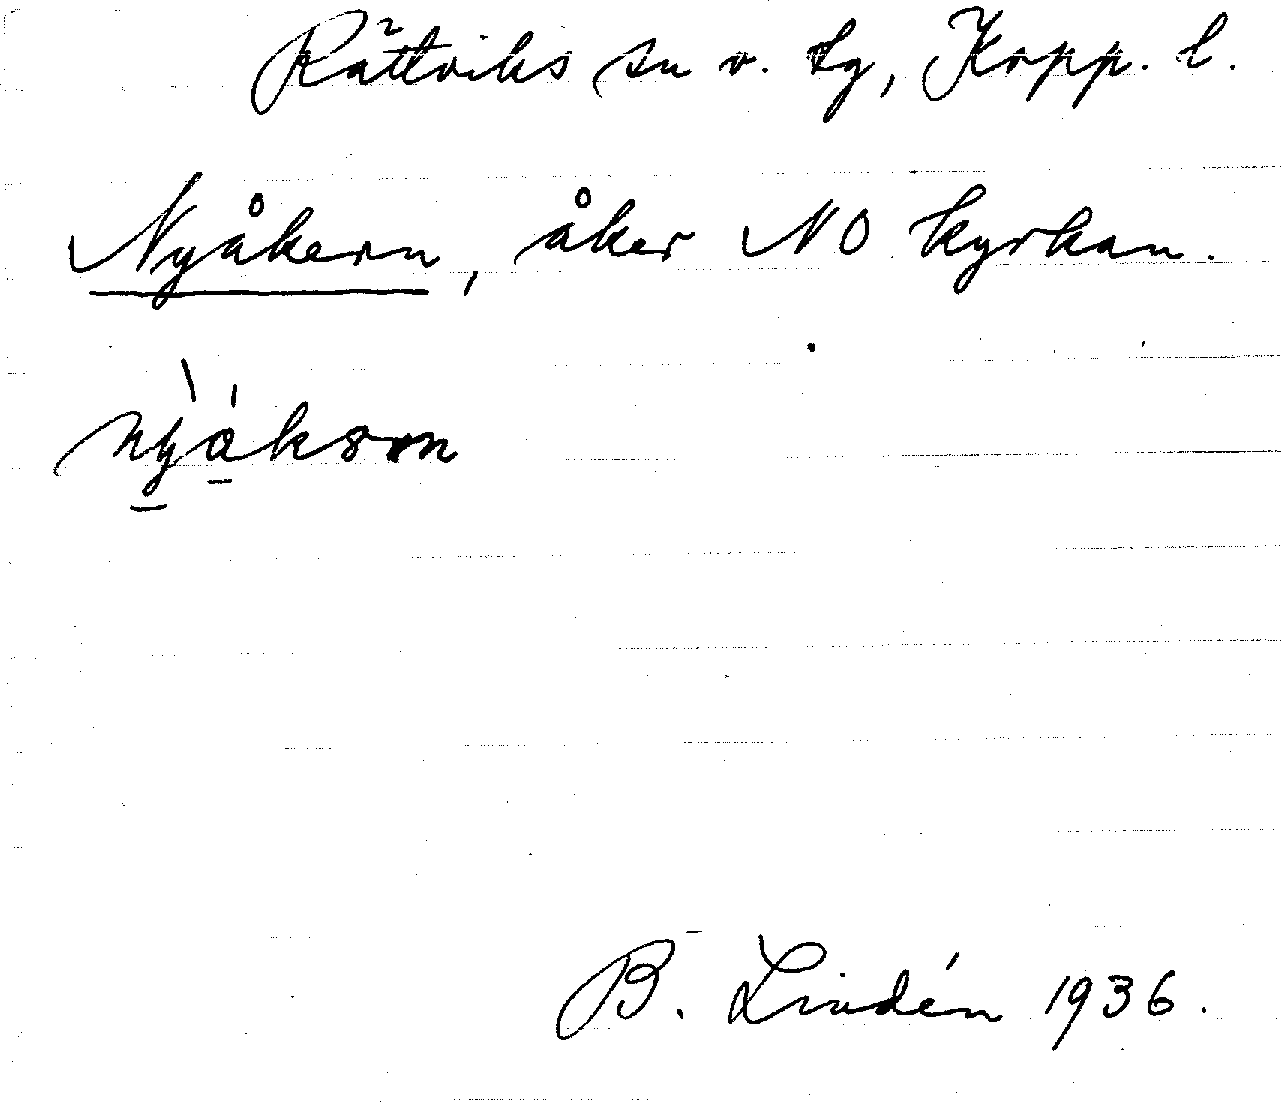 Rättviks sn o. tg, Kopp. l.
Nyåkern, åker NO kyrkan.
B. Lindén 1936.